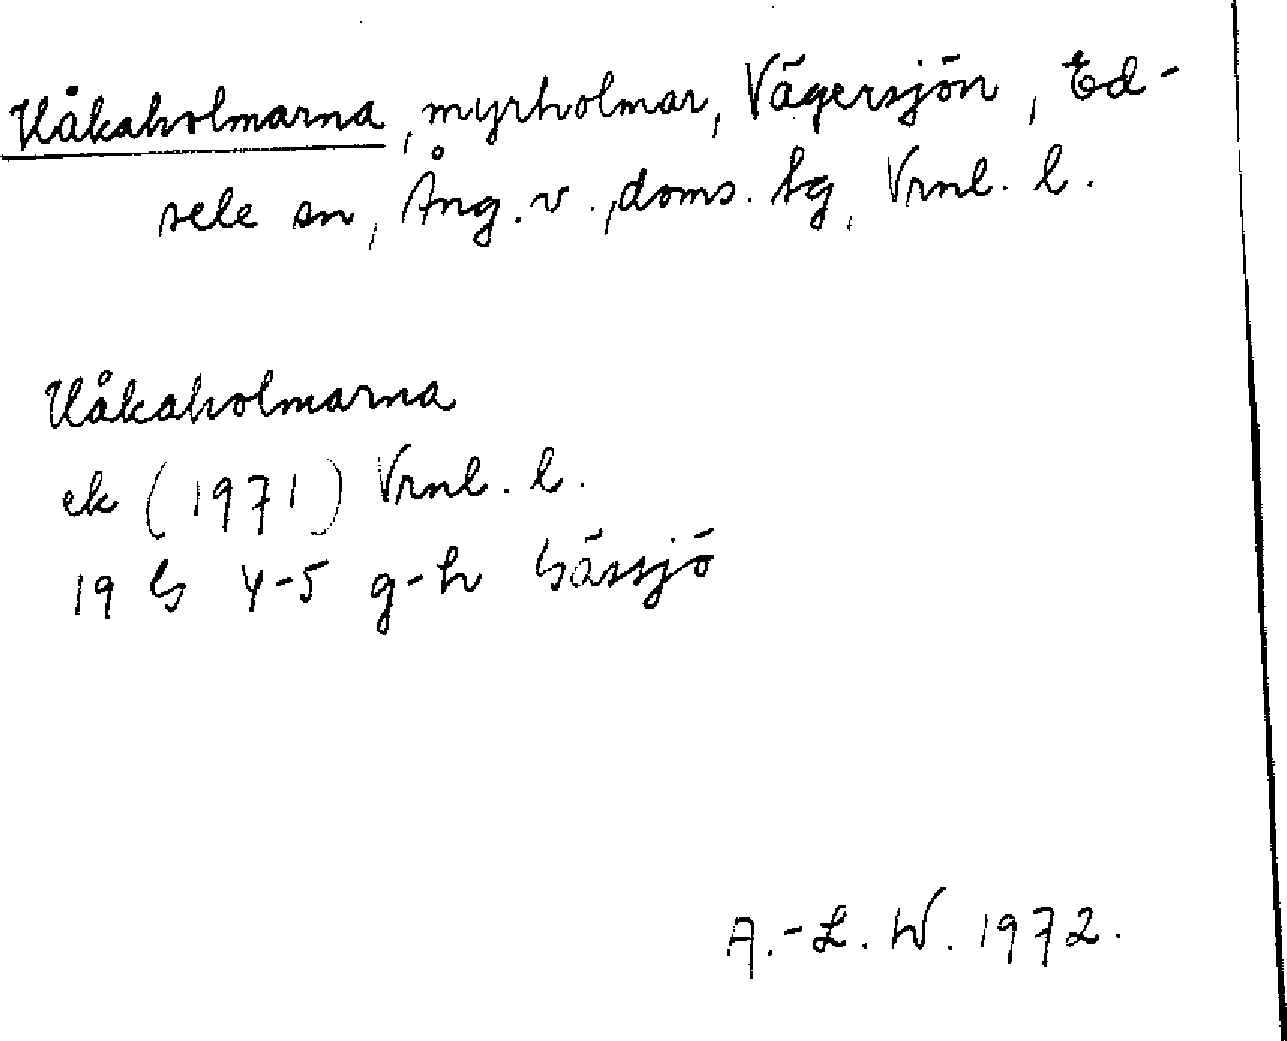 Håkaholmarna, myrholmar, Vägersjön, Ed-
sele sn, Ång. v., doms. tg, Vrnl. l.
Håkaholmarna
ek (1971) Vrnl. l.
19 G 4-5 g-h Gässjö
A.-L. W. 1972.